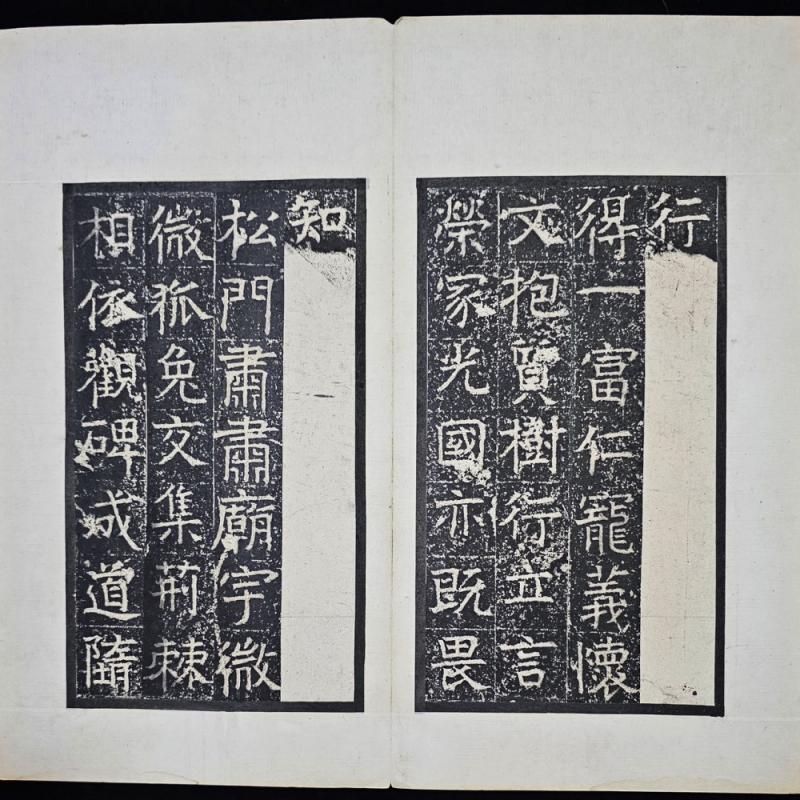 行
得一富仁寵義懷
文抱質樹行立言
榮家光國亦既畏
知
松門肅肅廟宇微
微狐兔交集荊棘
相依觀碑成道隋